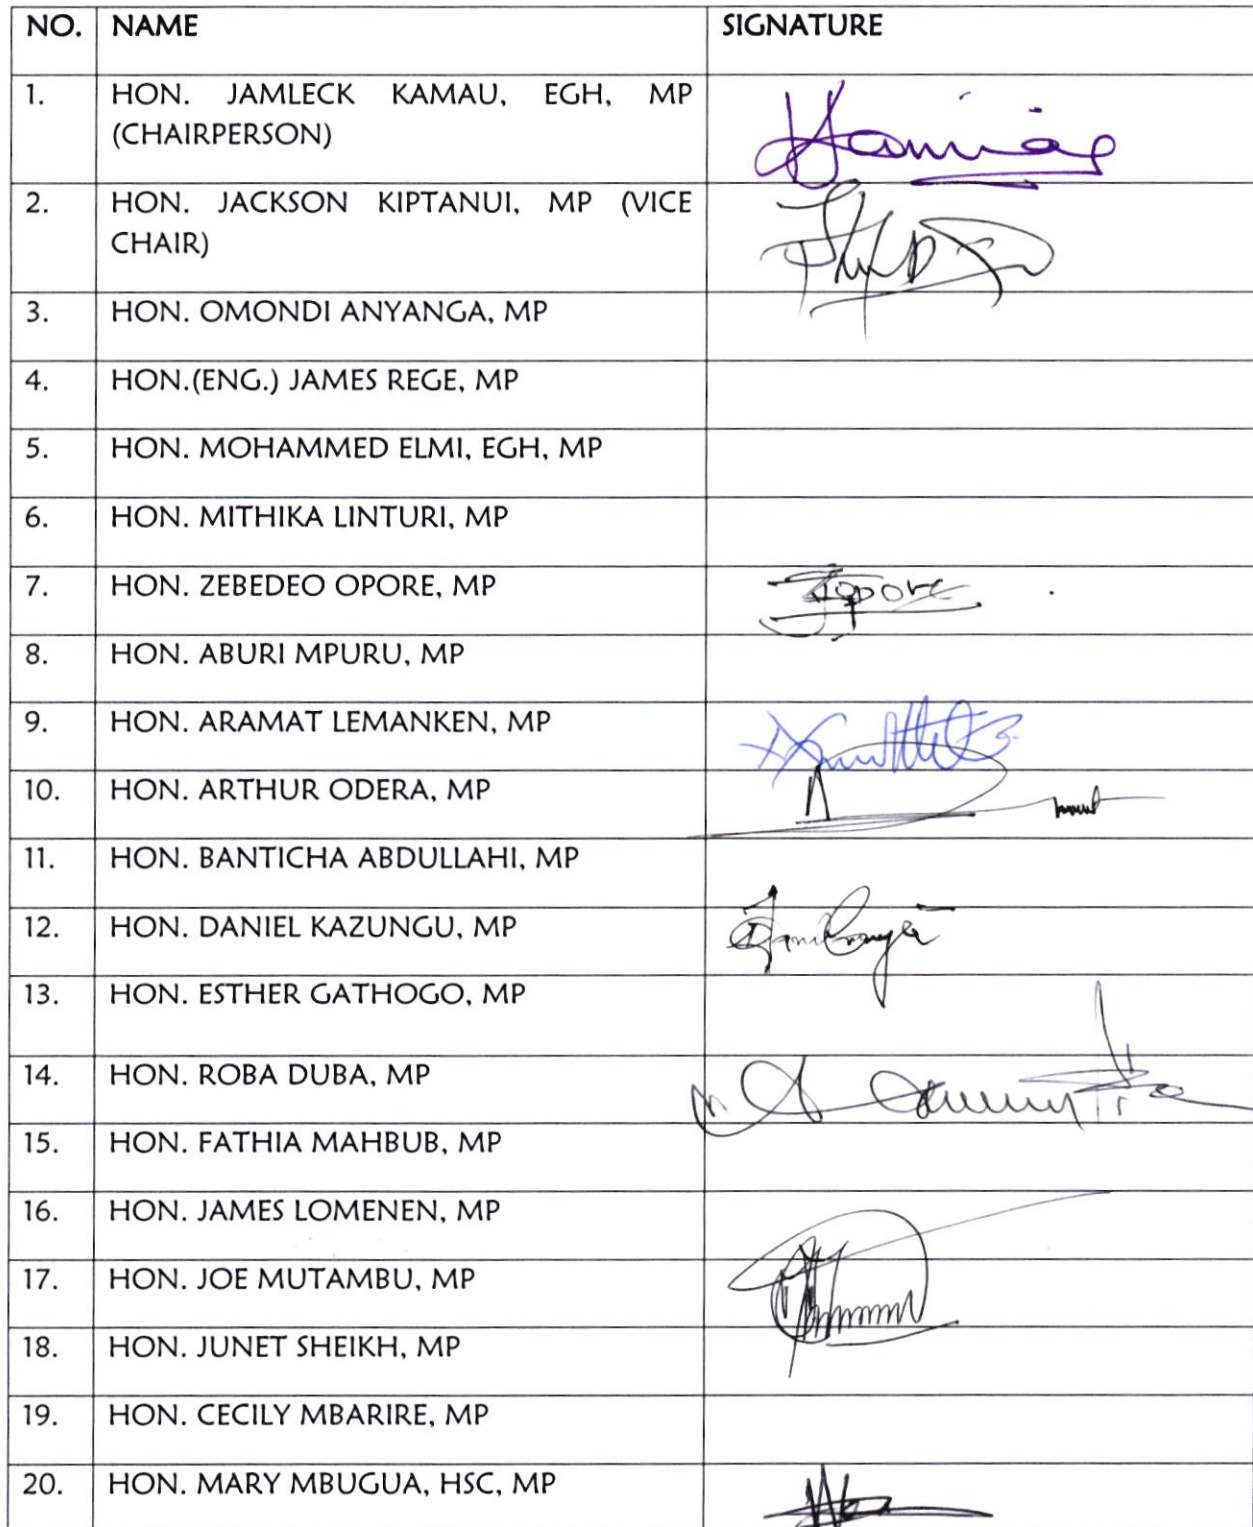 NO. NAME SIGNATURE
1. HON. JAMLECK KAMAU, EGH, MP
(CHAIRPERSON)
2. HON. JACKSON KIPTANUI, MP (VICE
CHAIR)
3. HON. OMONDI ANYANGA, MP
4. HON.(ENG.) JAMES REGE, MP
5. HON. MOHAMMED ELMI, EGH, MP
6. HON. MITHIKA LINTURI, MP
7. HON. ZEBEDEO OPORE, MP
8. HON. ABURI MPURU, MP
9. HON. ARAMAT LEMANKEN, MP
10. HON. ARTHUR ODERA, MP
11. HON. BANTICHA ABDULLAHI, MP
12. HON. DANIEL KAZUNGU, MP
13. HON. ESTHER GATHOGO, MP
14. HON. ROBA DUBA, MP
15. HON. FATHIA MAHBUB, MP
16. HON. JAMES LOMENEN, MP
17. HON. JOE MUTAMBU, MP
18. HON. JUNET SHEIKH, MP
19. HON. CECILY MBARIRE, MP
20. HON. MARY MBUGUA, HSC, MP